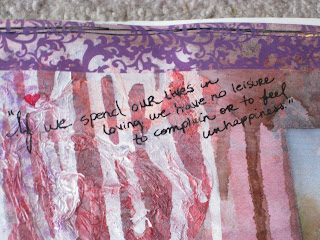 "If we spend our lives in
loving we have no leisure
to complain or to feel
unhappiness."